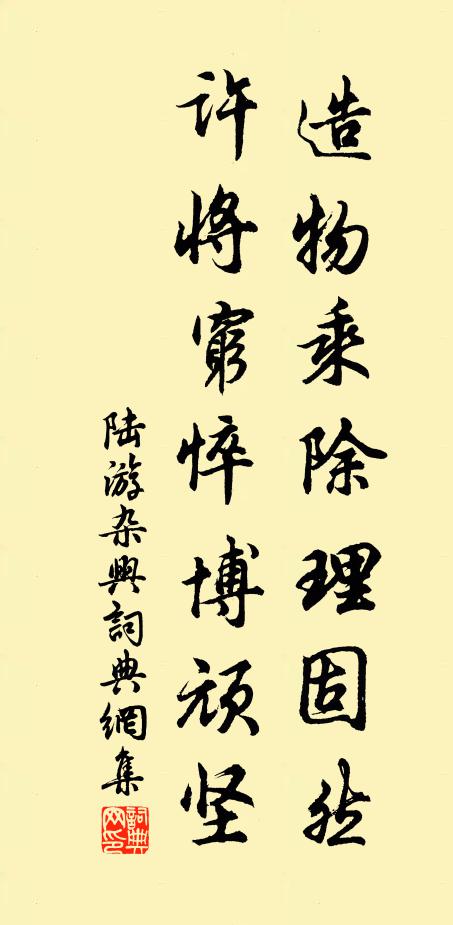 造物乘除理固然
许将窮悴博顽坚
陆游杂興詞典網集
詞典网印